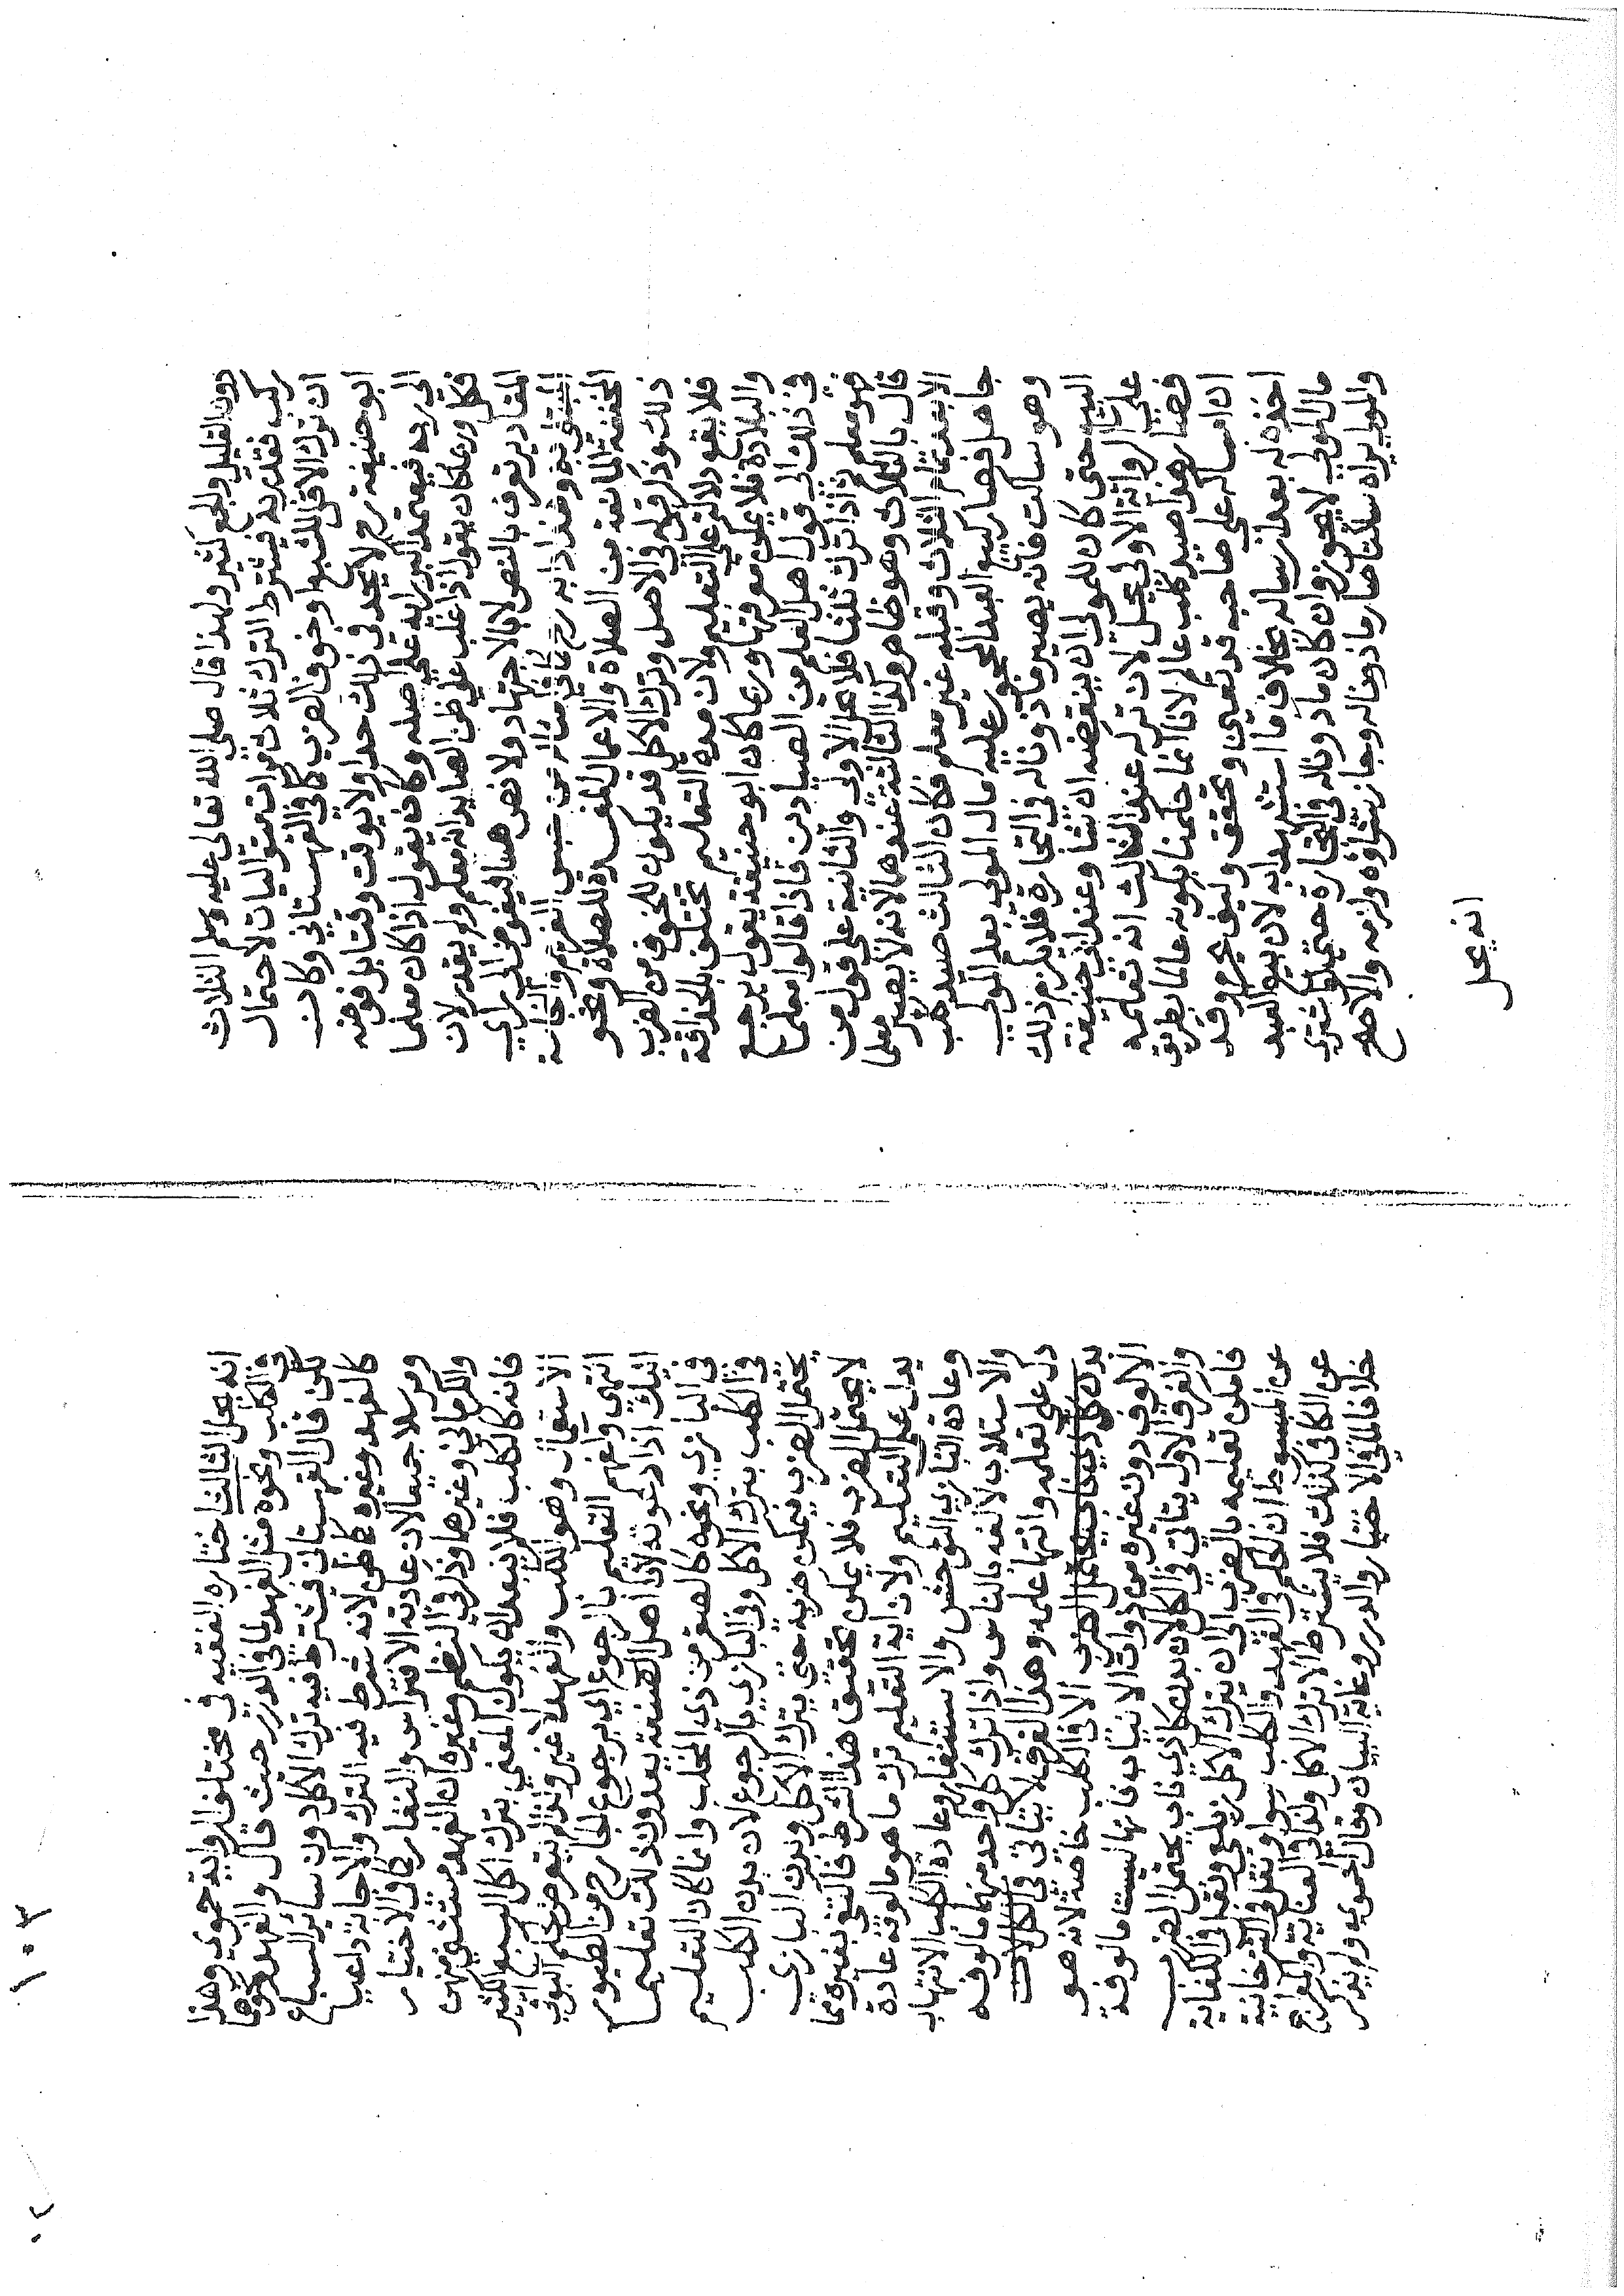 دون القليل والجمع كثير ولهذا قال صلى الله تعالى عليه وسلم الثلاث
ركب فقلد به فيشترط الترك ثلاث مرات متواليات لاحتمال
ان ترك الاكل للشبع او خوف الضرب كما في القهستاني وكان
ابو حنيفة رح لا يحد في ذلك حدا ولا يوقت وقتا بل فوضه
الى رايه فيعتمد اكبر رايه على اصله وكان يقول اذا كان معلما
فكل وربما كان يقول اذا غلب على ظن الصايد انه معلم ولم يقدر لان
المقادير تعرف بالنص لا بالاجتهاد ولا نص هنا فيفوض الى راي
المبتلى به
المخففة المانعة من الصلاة والاعمال المفسدة للصلاة ونحو
ذلك وذكر في الاصل وترك الاكل قد يكون للخوف من الضرب
فلا يقع دلالة على التعليم ولان مدة التعليم تختلف بالحذاقة
والبلادة فلا يمكن معرفتها وربما كان ابو حنيفة يقول يرجع
في ذلك الى قول اهل العلم من الصيادين فاذا قالوا معلما
فهو معلم ثم اذا ترك ثلثا فلا يحل الاولى والثانية على قول من
قال بالثلاث وهو ظاهر وكذا الثالثة عندهما لانه لا يصير معلما
الا بعد تمام الثلاث وقبله غير معلم فكان الثالث صيد كلب
جاهل فصار كبيع العبد المحجور عليه مال المولى بعد المولى
وهو ساكت فانه يصير ماذونا له في التجارة فلا يلزم ذلك
البيع حتى كان للمولى ان ينقضه ان شاء وعند ابي حنيفة
على الرواية الاولى يحل لان تركه عند الثالث انه تعلمه
فصار هذا صيد كلب عالم لانا انما حكمنا بكونه عالما بطريق
ان امساكه على صاحبه قد تعين وتحقق وكيف يحرم وقد
اخذه له بعد ارساله بخلاف ما استشهدا به لان بيع العبد
مال المولى لا يجوز وان كان ماذونا له في التجارة حتى لو اشترى
والمولى يراه ساكتا صار ماذونا له وجاز شراؤه ولزمه والاصح
انه يحل
انه يحل الثالث اختاره الفقيه في مختلف الرواية حموي وهذا
في الكلب ونحوه مثل الفهد لما في الدرر حيث قال والفهد ونحوهما
لكن قال القهستاني فيشترط فيه ترك الاكل دون سائر السباع
كالفهد وغيره كما ظن لانه شرط فيه الترك والاجابة داعيا
ومرسلا جميعا لان عادته الافتراس والنفار كما في الاختيار
والكرماني وغيرها وذكر في النظم وغيره ان الفهد مستثنى منهن
فانه كالكلب فلا يبعد ان يكون المعنى بترك اكل السبع الكثير
الاستعمال وهو الكلب والفهد لا غير ولذا لم يتعرض لحكم البواقي
انتهى وافهم التعليم بالرجوع اي برجوع الجارح من الطيور
اليك اذا دعوته لان اهل الصنعة يعدون ذلك تعليما
في البازي ونحوه كالصقر من ذي المخلب وانما كان التعليم
في الكلب بترك الاكل وفي البازي بالرجوع لان بدن الكلب
يحتمل الضرب فيمكن ضربه حتى يترك الاكل وبدن البازي
لا يحتمل الضرب فلا يمكن تحقيق هذا الشرط فاكتفي بغيره مما
يدل على التعليم ولان اية التعليم ترك ما هو مالوفه عادة
وعادة البازي التوحش والاستنفار وعادة الكلب الانتهاب
والاستلاب لالفه بالناس واذا ترك كل واحد منهما مالوفه
دل على تعلمه وانتهاء علمه وهذا الفرق لا يتاتى في الكل لان
بدن كل ذي ناب يحتمل الضرب الا في الكلب خاصة لانه هو
الالوف دون غيره من ذوات الانياب فانها ليست مالوفة
والفرق الاول يتاتى في الكل لان بدن كل ذي ناب يحتمل الضرب
فامكن تعليمه بالضرب الى ان يترك الاكل زيلعي ونقل في الكفاية
عن المبسوط ان الحكم في الفهد والكلب سواء ونقل في التترخانية
عن الكافي كذلك فلا يشترط الا ترك الاكل ولذا في العناية والمعراج
خلافا لما في الاختيار والدرر وغاية البيان وقال الحموي ولم يذكر
١٠٣